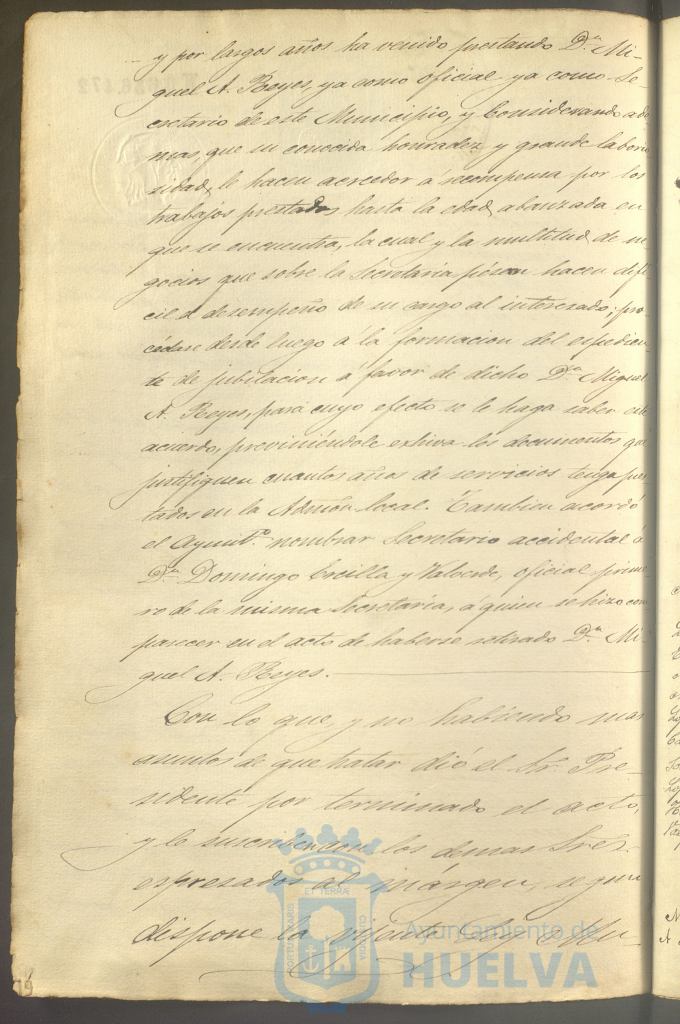 y por largos años ha venido prestando Dn. Mi-
guel A. Reyes, ya como oficial ya como Se-
cretario de este Municipio, y Considerando ade
mas, que su conocida honradez y grande laborio
sidad, le hacen acreedor á recompensa por los
trabajos prestados hasta la edad abanzada en
que se encuentra, la cual y la multitud de ne
gocios que sobre la Secretaria pésan hacen difi
cil el desempeño de su cargo al interesado; pro-
cédase desde luego á la formacion del espedien-
te de jubilacion á favor de dicho Dn. Miguel
A. Reyes, para cuyo efecto se le haga saber este
acuerdo, previniéndole exhiva los documentos que
justifiquen cuantos años de servicios tenga pres
tados en la Admón local. Tambien acordó
el Ayuntº. nombrar Secretario accidental á
Dn. Domingo Ercilla y Valverde, oficial prime-
ro de la misma Secretaría, á quien se hizo com
parecer en el acto de haberse retirado Dn. Mi-
guel A. Reyes.
Con lo que, y no habiendo mas
asuntos de que tratar dió el Sr. Pre-
sidente por terminado el acto,
y lo suscriben con los demas Sres.
espresados al márgen, segun
dispone la vijente Ley Mu-
PORTUS MARIS
ET TERRÆ
CUSTODIA
Ayuntamiento de
HUELVA